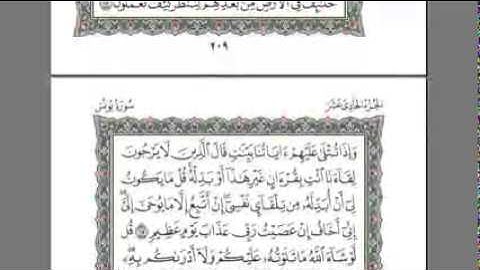 خَلَٰٓئِفَ فِي ٱلْأَرْضِ مِنۢ بَعْدِهِمْ لِنَنظُرَ كَيْفَ تَعْمَلُونَ
٢٠٩
الجزء الحادي عشر
سورة يونس
وَإِذَا تُتْلَىٰ عَلَيْهِمْ ءَايَاتُنَا بَيِّنَٰتٍ قَالَ ٱلَّذِينَ لَا يَرْجُونَ
لِقَآءَنَا ٱئْتِ بِقُرْءَانٍ غَيْرِ هَٰذَآ أَوْ بَدِّلْهُ ۚ قُلْ مَا يَكُونُ
لِىٓ أَنْ أُبَدِّلَهُۥ مِن تِلْقَآئِ نَفْسِىٓ ۖ إِنْ أَتَّبِعُ إِلَّا مَا يُوحَىٰٓ إِلَىَّ ۖ
إِنِّىٓ أَخَافُ إِنْ عَصَيْتُ رَبِّى عَذَابَ يَوْمٍ عَظِيمٍ ١٥ قُل
لَّوْ شَآءَ ٱللَّهُ مَا تَلَوْتُهُۥ عَلَيْكُمْ وَلَآ أَدْرَىٰكُم بِهِۦ ۖ